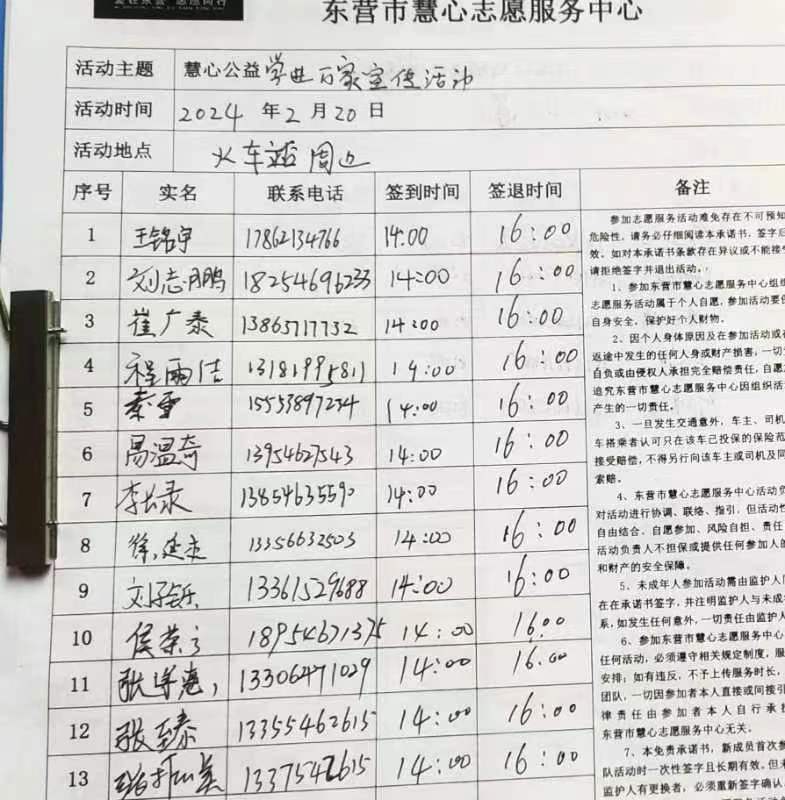 爱在东营 志愿同行
东营市慧心志愿服务中心
活动主题 慧心公益 学典百家宣传活动
活动时间 2024年2月20日
活动地点 火车站周边
序号 实名 联系电话 签到时间 签退时间 备注
1 王铭宇 17862134766 14:00 16:00
2 刘志鹏 18254696233 14:00 16:00
3 崔广泰 13865717732 14:00 16:00
4 程雨洁 13181995811 14:00 16:00
5 秦雪 15553897234 14:00 16:00
6 易温奇 13954627543 14:00 16:00
7 李长录 13854635590 14:00 16:00
8 徐延 13356632503 14:00 16:00
9 刘 13361529688 14:00 16:00
10 侯荣 18954671375 14:00 16:00
11 张 13306471029 14:00 16:00
12 张至泰 13355462615 14:00 16:00
13 13375472615 14:00 16:00
参加志愿服务活动难免存在不可预知
危险性，请务必仔细阅读本承诺书，签字后
效。如对本承诺书条款存在异议或不能接受
请拒绝签字并退出活动。
1、参加东营市慧心志愿服务中心组织
志愿服务活动属于个人自愿，参加活动要保
自身安全，保护好个人财物。
2、因个人身体原因及在参加活动或在
返途中发生的任何人身或财产损害，一切
自负或由侵权人承担完全赔偿责任，自愿
追究东营市慧心志愿服务中心因组织活
产生的一切责任。
3、一旦发生交通意外，车主、司机
车搭乘者认可只在该车已投保的保险范
接受赔偿，不得另行向该车主或司机及同
索赔。
4、东营市慧心志愿服务中心活动负
对活动进行协调、联络、指引，但活动性
自由结合、自愿参加、风险自担、责任
活动负责人不担保或提供任何参加人的
和财产的安全保障。
5、未成年人参加活动需由监护人
在在承诺书签字，并注明监护人与未成
系，如发生任何意外，一切责任由监护人
6、参加东营市慧心志愿服务中心
任何活动，必须遵守相关规定制度，服
安排；如有违反，不予上传服务时长，
团队，一切因参加者本人直接或间接引
律责任由参加者本人自行承担
东营市慧心志愿服务中心无关。
7、本免责承诺书，新成员首次参
队活动时一次性签字且长期有效。但未
监护人有更换者，必须重新签字确认。